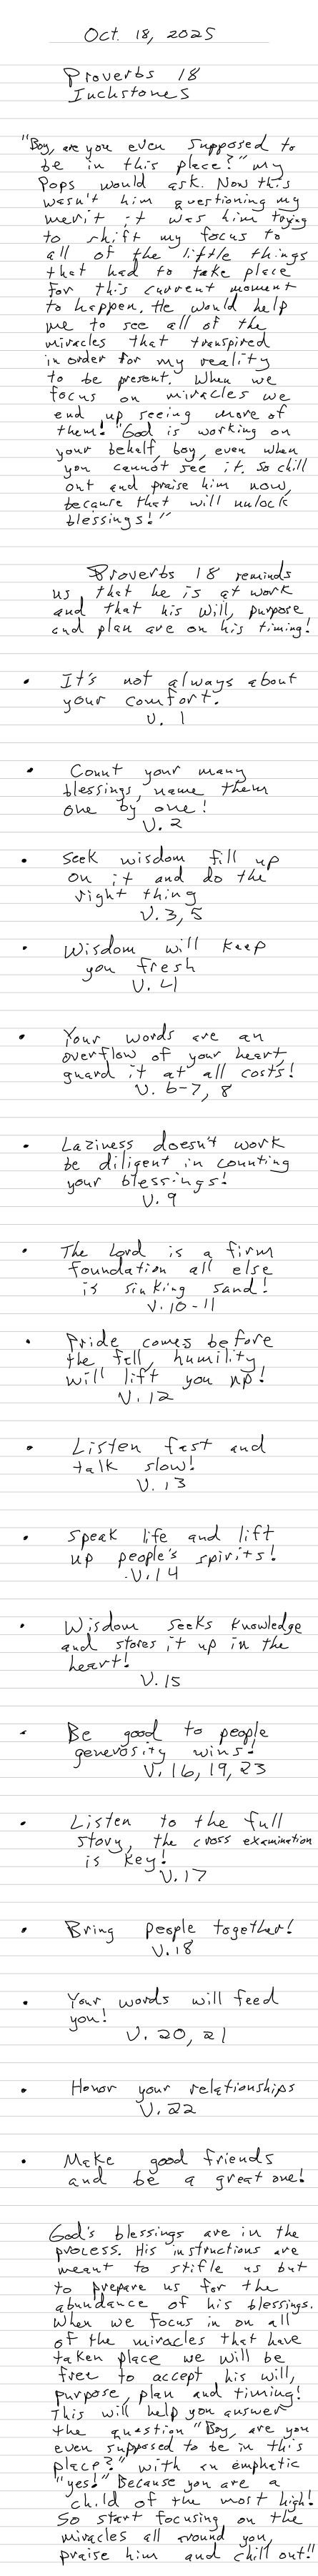 Oct. 18, 2025
Proverbs 18
Inchstones
"Boy, are you even supposed to
be in this place?" my
Pops would ask. Now this
wasn't him questioning my
merit it was him trying
to shift my focus to
all of the little things
that had to take place
for this current moment
to happen. He would help
me to see all of the
miracles that transpired
in order for my reality
to be present. When we
focus on miracles we
end up seeing more of
them! "God is working on
your behalf, boy, even when
you cannot see it. So chill
out and praise him now,
because that will unlock
blessings!"
Proverbs 18 reminds
us, that he is at work
and that his will, purpose
and plan are on his timing!
• It's not always about
your comfort.
V. 1
• Count your many
blessings, name them
one by one!
V. 2
• Seek wisdom fill up
on it and do the
right thing
V. 3, 5
• Wisdom will keep
you fresh
V. 4
• Your words are an
overflow of your heart,
guard it at all costs!
V. 6-7, 8
• Laziness doesn't work
be diligent in counting
your blessings!
V. 9
• The Lord is a firm
foundation all else
is sinking sand!
V. 10-11
• Pride comes before
the fall, humility
will lift you up!
V. 12
• Listen fast and
talk slow!
V. 13
• Speak life and lift
up people's spirits!
V. 14
• Wisdom seeks knowledge
and stores it up in the
heart!
V. 15
• Be good to people
generosity wins!
V. 16, 19, 23
• Listen to the full
story, the cross examination
is key!
V. 17
• Bring people together!
V. 18
• Your words will feed
you!
V. 20, 21
• Honor your relationships
V. 22
• Make good friends
and be a great one!
God's blessings are in the
process. His instructions are
meant to stifle us but
to prepare us for the
abundance of his blessings.
When we focus in on all
of the miracles that have
taken place we will be
free to accept his will,
purpose, plan and timing!
This will help you answer
the question "Boy, are you
even supposed to be in this
place?" with an emphatic
"yes!" Because you are a
child of the most high!
So start focusing on the
miracles all around you,
praise him and chill out!!